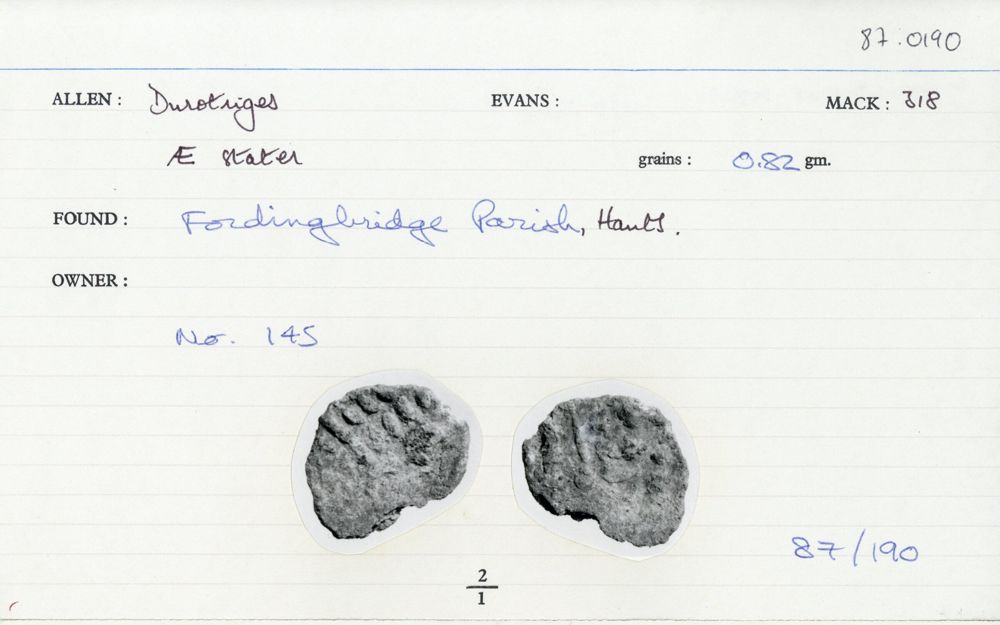 87.0190
ALLEN : Durotriges EVANS : MACK : 318
Æ stater grains : 0.82 gm.
FOUND : Fordingbridge Parish, Hants.
OWNER :
No. 145
87/190
2
1